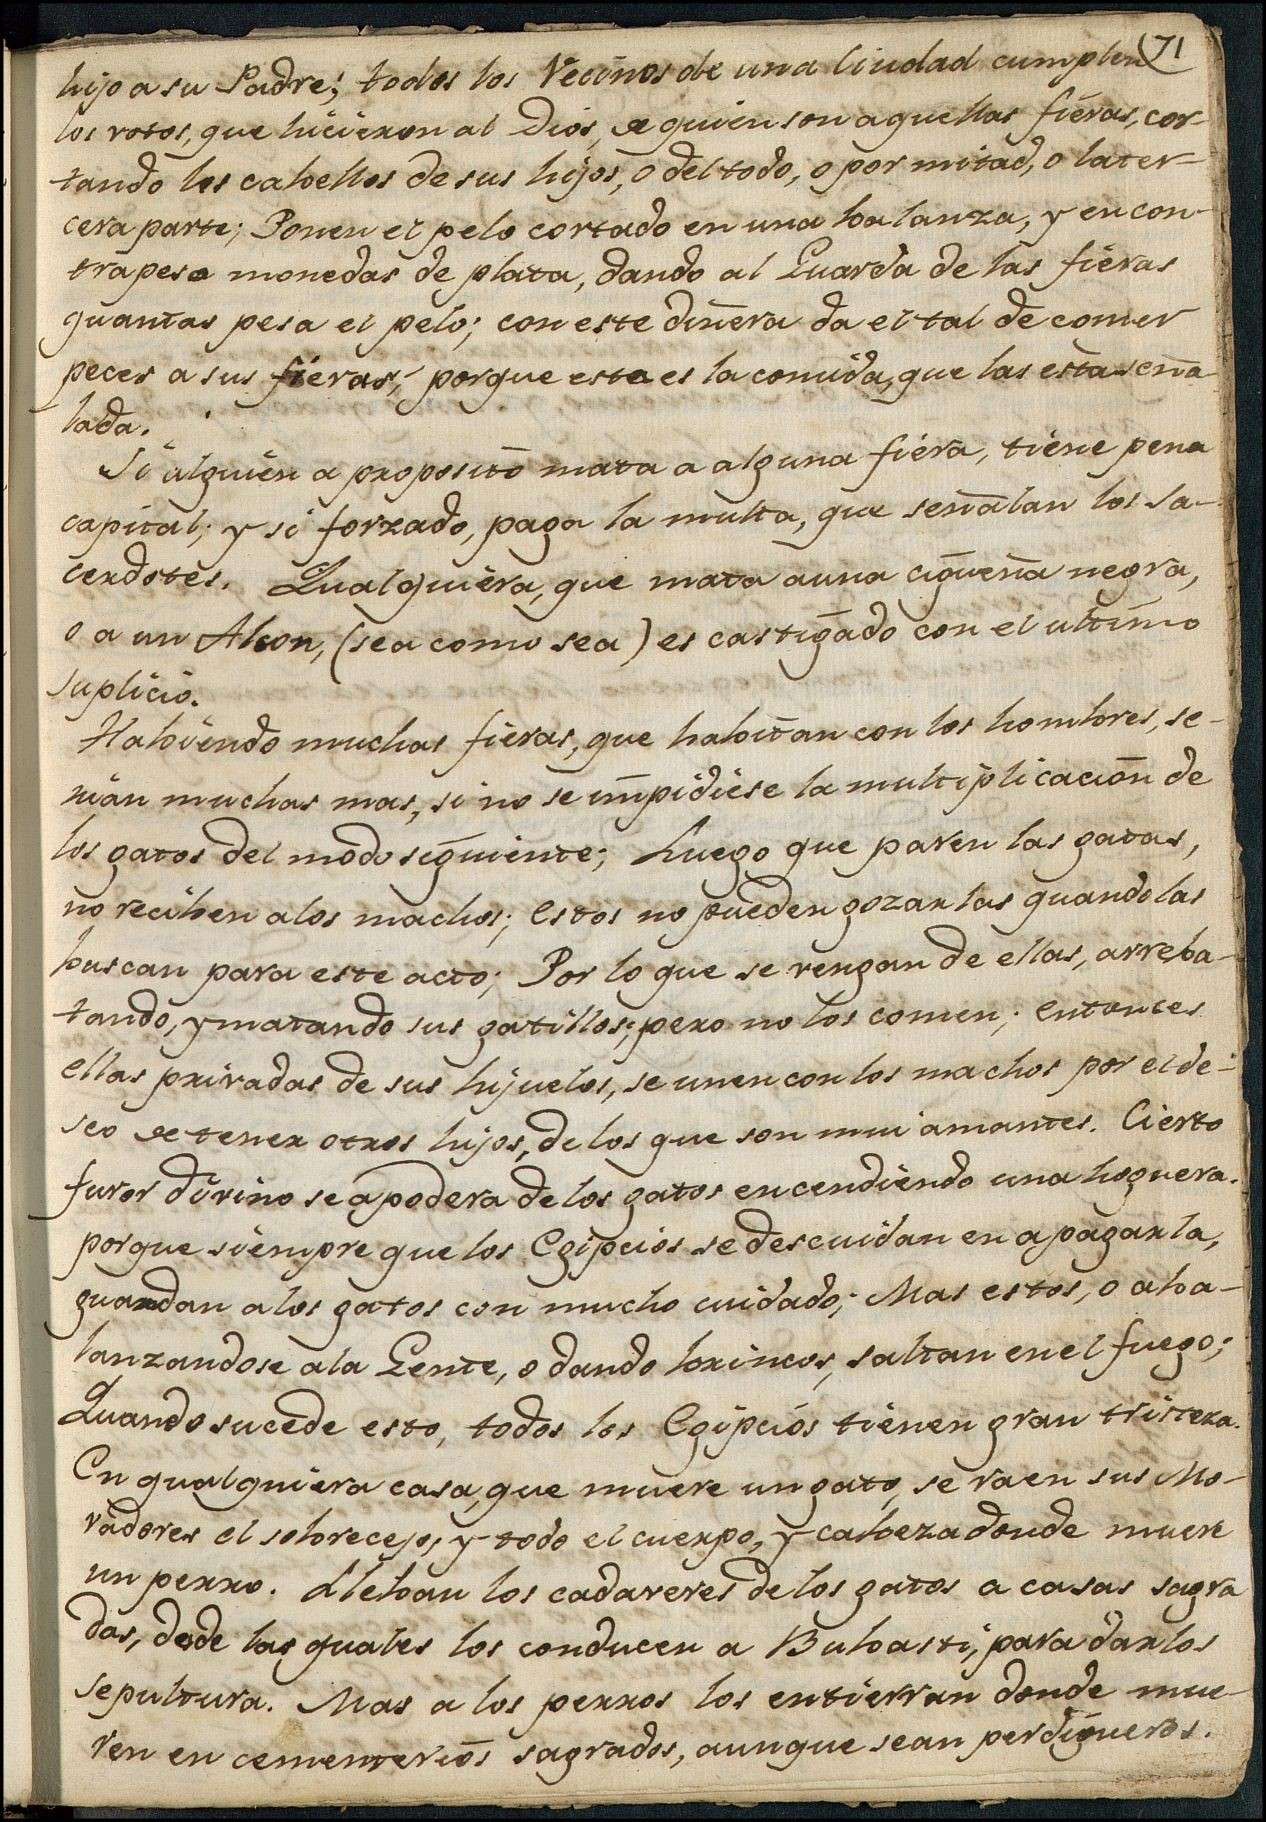 71
hijo a su Padre; todos los Vecinos de una Ciudad cumplen
los votos, que hicieron al Dios, de quien son aquellas fieras, cor-
tando los cabellos de sus hijos, o del todo, o por mitad, o la ter-
cera parte; Ponen el pelo cortado en una balanza, y en con-
trapeso monedas de plata, dando al Guarda de las fieras
quantas pesa el pelo; con este dinero da el tal de comer
peces a sus fieras; porque esta es la comida, que las està seña
lada.
Si alguien a proposito mata a alguna fiera, tiene pena
capital; y si forzado, paga la multa, que señalan los Sa-
cerdotes. Qualquiera, que mata a una cigueña negra,
o a un Alcon, (sea como sea) es castigado con el ultimo
suplicio.
Habiendo muchas fieras, que habitan con los hombres, se-
rian muchas mas, si no se impidiese la multiplicacion de
los gatos del modo siguiente; Luego que paren las gatas,
no reciben a los machos; estos no pueden gozarlas quando las
buscan para este acto; Por lo que se vengan de ellas, arreba-
tando, y matando sus gatillos; pero no los comen; entonces
ellas privadas de sus hijuelos, se unen con los machos por el de-
seo de tener otros hijos, de los que son mui amantes. Cierto
furor divino se apodera de los gatos encendiendo una hoguera.
porque siempre que los Egipcios se descuidan en apagarla,
guardan a los gatos con mucho cuidado; Mas estos, o aba-
lanzandose a la Gente, o dando brincos, saltan en el fuego;
Quando sucede esto, todos los Egipcios tienen gran tristeza.
En qualquiera casa, que muere un gato, se raen sus Mo-
radores el sobrecejo; y todo el cuerpo, y cabeza donde muere
un perro. Lleban los cadaveres de los gatos a casas sagra
das, desde las quales los conducen a Bubasti, para darlos
sepultura. Mas a los perros los entierran donde mue-
ren en cementerios sagrados, aunque sean perdigueros.